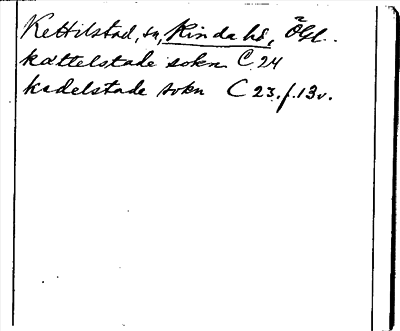 Kettilstad, sn, Kinda hd, Ögl.
kættelstade sokn C 24
kadelstade sokn C 23. f. 13v.